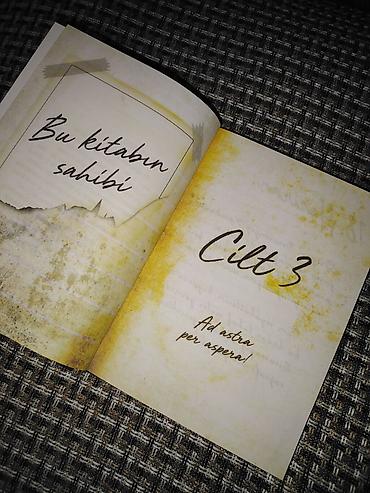 Bu kitabın
sahibi
Cilt 3
Ad astra
per aspera!